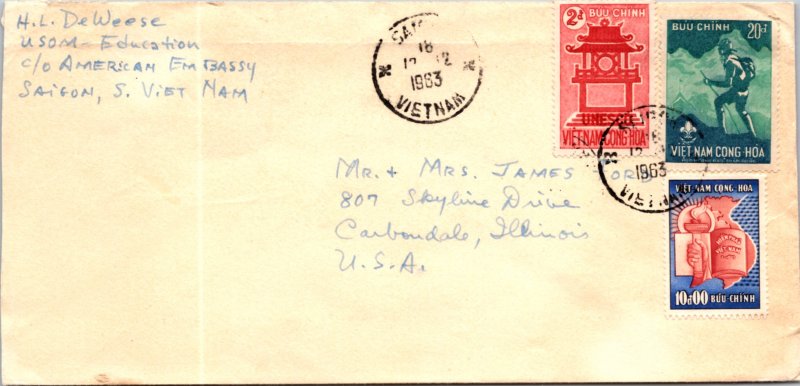 H.L. DeWeese
USOM - Education
c/o American Embassy
Saigon, S. Viet Nam
18
12
1963
VIETNAM
2đ BƯU CHÍNH
UNESCO
VIỆT NAM CỘNG HÒA
BƯU-CHÍNH
20đ
VIỆT-NAM CỘNG-HÒA
1963
VIETNAM
Mr. + Mrs. James
807 Skyline Drive
Carbondale, Illinois
U.S.A.
VIỆT-NAM CỘNG-HÒA
10đ00 BƯU-CHÍNH